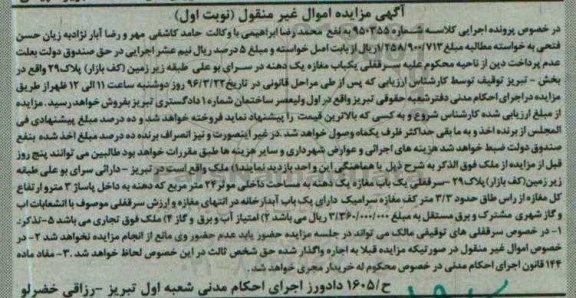 آگهی مزایده اموال غیر منقول (نوبت اول)
در خصوص پرونده اجرایی کلاسه شماره ۹۵۰۳۵۵ به نفع محمد رضا ابراهیمی با وکالت حامد کاشفی مهر و رضا آبار نژاد به زیان حسن
فتحی به خواسته مطالبه مبلغ ۱/۲۵۸/۹۰۰/۷۱۳ ریال از بابت اصل خواسته و مبلغ ۵ درصد ریال نیم عشر اجرایی در حق صندوق دولت بعلت
عدم پرداخت دین از ناحیه محکوم علیه سرقفلی یکباب مغازه یک دهنه در سرای بو علی طبقه زیر زمین (کف بازار) پلاک ۲۹ واقع در
بخش - تبریز توقیف توسط کارشناس ارزیابی که پس از طی مراحل قانونی در تاریخ ۹۶/۳/۲۲ روز دوشنبه ساعت ۱۱ الی ۱۲ ظهر از طریق
مزایده در اجرای احکام مدنی دفتر شعبه حقوقی تبریز واقع در اول ولیعصر ساختمان شماره ۱ دادگستری تبریز بفروش خواهد رسید. مزایده
از مبلغ ارزیابی شده کارشناس شروع و به کسی که بالاترین قیمت را پیشنهاد نماید فروخته خواهد شد و ده درصد مبلغ پیشنهادی فی
المجلس از برنده اخذ و به ما بقی حداکثر ظرف یکماه وصول خواهد شد. در غیر اینصورت و نیز انصراف برنده ده درصد مبلغ اخذ شده بنفع
صندوق دولت ضبط خواهد شد هزینه های اجرائی و عوارض شهرداری و سایر هزینه ها طبق مقررات خواهد بود طالبین می توانند پنج روز
قبل از مزایده از ملک فوق الذکر به شرح ذیل با هماهنگی این واحد بازدید نمایند. ملک واقع است در تبریز - دارائی سرای بو علی طبقه
زیر زمین (کف بازار) پلاک ۲۹ - سرقفلی یک باب مغازه یک دهنه به مساحت داخلی موثر ۲۴ متر مربع که دهنه به داخل پاساژ ۳ متر و ارتفاع
کل مغازه از راس طاق حدود ۳/۳ متر کف مغازه سرامیک دارای یک باب آبدارخانه در انتهای مغازه و ارزش سرقفلی موصوف با انشعابات اب
و گاز شهری مشترک و برق مستقل به مبلغ ۳/۳۶۰/۰۰۰/۰۰۰ ریال می باشد ۲) امتیاز آب و برق و گاز ۴) ملک فوق تجاری می باشد ۵- تذکر:
۱- در خصوص سرقفلی های توقیفی مالک می تواند در جلسه مزایده حضور یابد عدم حضور وی مانع از انجام مزایده نخواهد شد ۲- در
خصوص اموال غیر منقول در صورتیکه مزایده قبلا به اجاره واگذار شده حق شخص ثالث در این خصوص لحاظ خواهد شد. ۳- مفاد ماده
۱۴۴ قانون اجرای احکام مدنی در خصوص محکوم له خریدار مجری خواهد شد.
ح/۱۶۰۵ دادورز اجرای احکام مدنی شعبه اول تبریز - رزاقی خضرلو